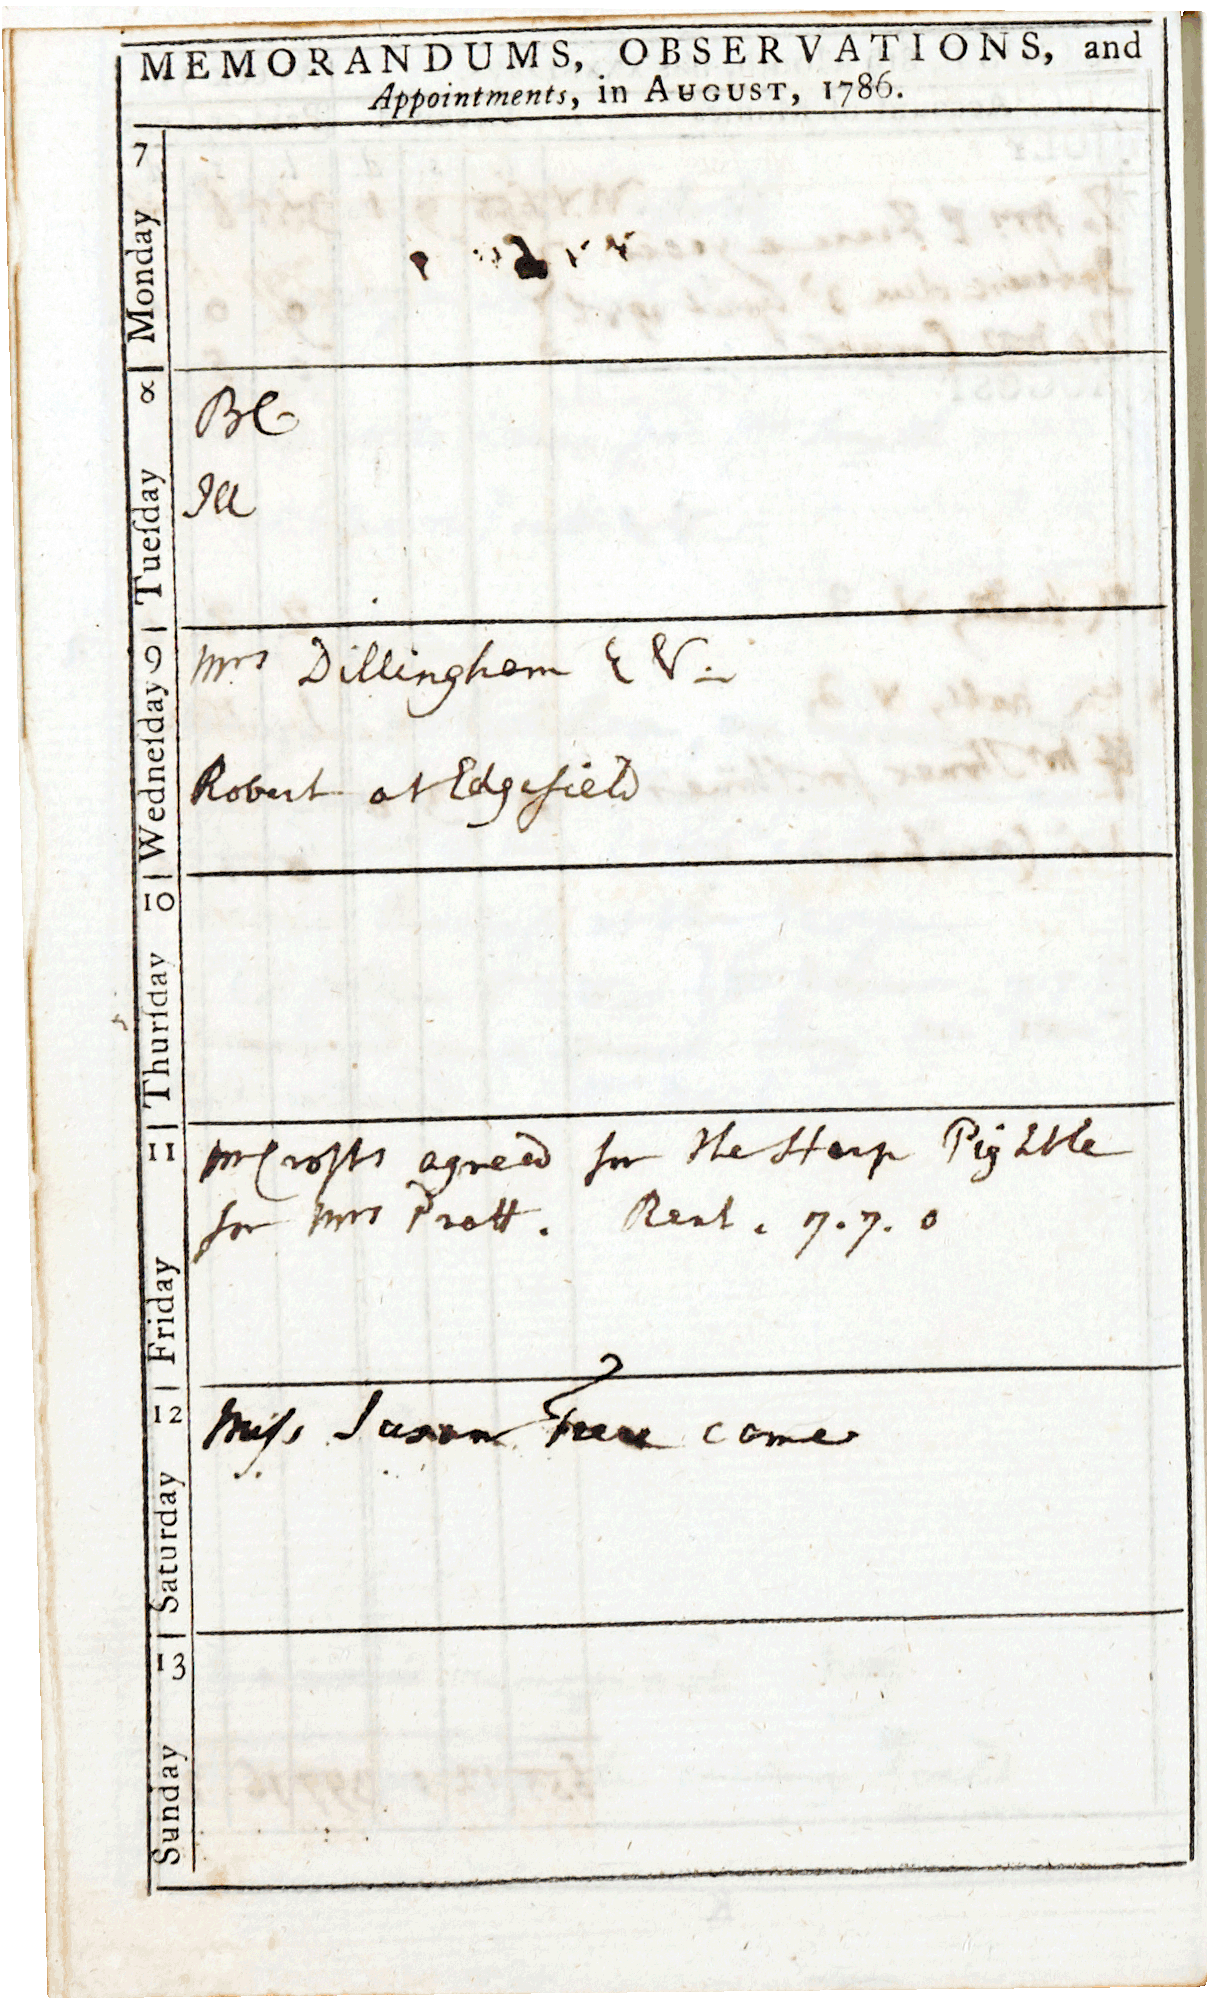 MEMORANDUMS, OBSERVATIONS, and
Appointments, in AUGUST, 1786.
7 Monday
8 Tueſday
BC
Ill
9 Wedneſday
Mrs Dillingham & V:
Robert at Edgefield
10 Thurſday
11 Friday
Mr Crofts agreed for the Pightle
for Mrs Pratt. Rent. 7.7.0
12 Saturday
Miſs Susan Frere came
13 Sunday